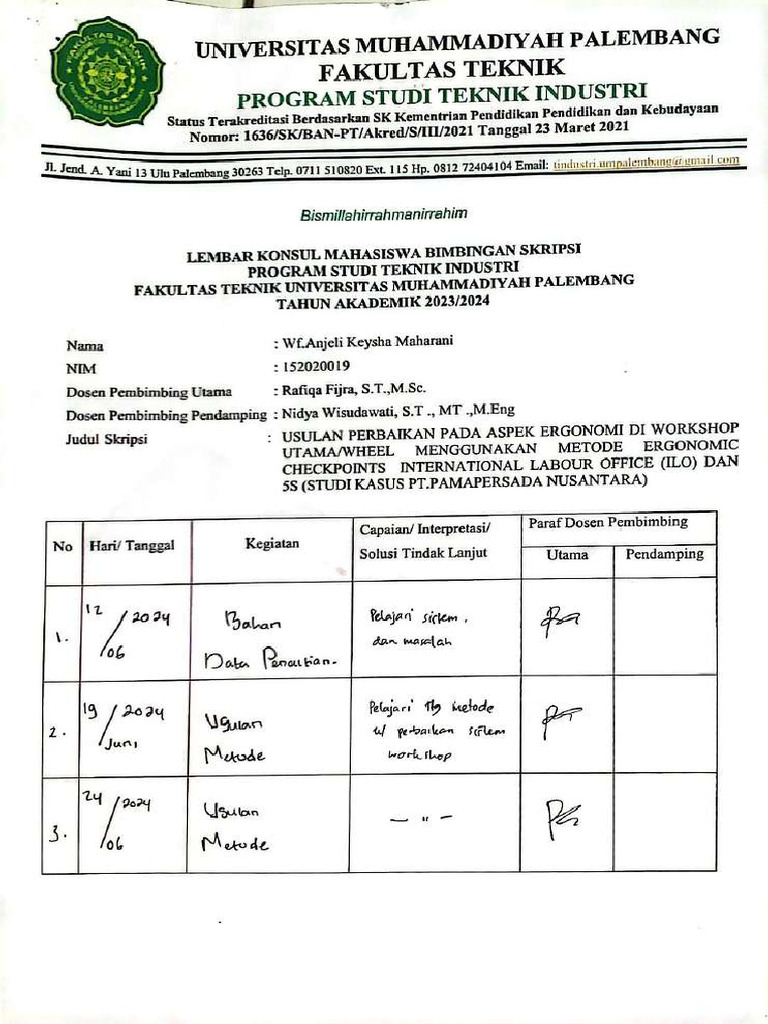 FAKULTAS TEKNIK
UNIVERSITAS MUHAMMADIYAH PALEMBANG
FAKULTAS TEKNIK
PROGRAM STUDI TEKNIK INDUSTRI
Status Terakreditasi Berdasarkan SK Kementrian Pendidikan Pendidikan dan Kebudayaan
Nomor: 1636/SK/BAN-PT/Akred/S/III/2021 Tanggal 23 Maret 2021
Jl. Jend. A. Yani 13 Ulu Palembang 30263 Telp. 0711 510820 Ext. 115 Hp. 0812 72404104 Email: tindustri.umpalembang@gmail.com
Bismillahirrahmanirrahim
LEMBAR KONSUL MAHASISWA BIMBINGAN SKRIPSI
PROGRAM STUDI TEKNIK INDUSTRI
FAKULTAS TEKNIK UNIVERSITAS MUHAMMADIYAH PALEMBANG
TAHUN AKADEMIK 2023/2024
Nama : Wf.Anjeli Keysha Maharani
NIM : 152020019
Dosen Pembimbing Utama : Rafiqa Fijra, S.T.,M.Sc.
Dosen Pembimbing Pendamping : Nidya Wisudawati, S.T ., MT .,M.Eng
Judul Skripsi : USULAN PERBAIKAN PADA ASPEK ERGONOMI DI WORKSHOP
UTAMA/WHEEL MENGGUNAKAN METODE ERGONOMIC
CHECKPOINTS INTERNATIONAL LABOUR OFFICE (ILO) DAN
5S (STUDI KASUS PT.PAMAPERSADA NUSANTARA)
No Hari/ Tanggal Kegiatan Capaian/ Interpretasi/ Paraf Dosen Pembimbing
Solusi Tindak Lanjut Utama Pendamping
1. 12/06 2024 Bahan Pelajari sistem,
Data Penelitian. dan masalah
2. 19/Juni 2024 Usulan Pelajari ttg metode
Metode u/ perbaikan sistem
workshop
3. 24/06 2024 Usulan — " —
Metode